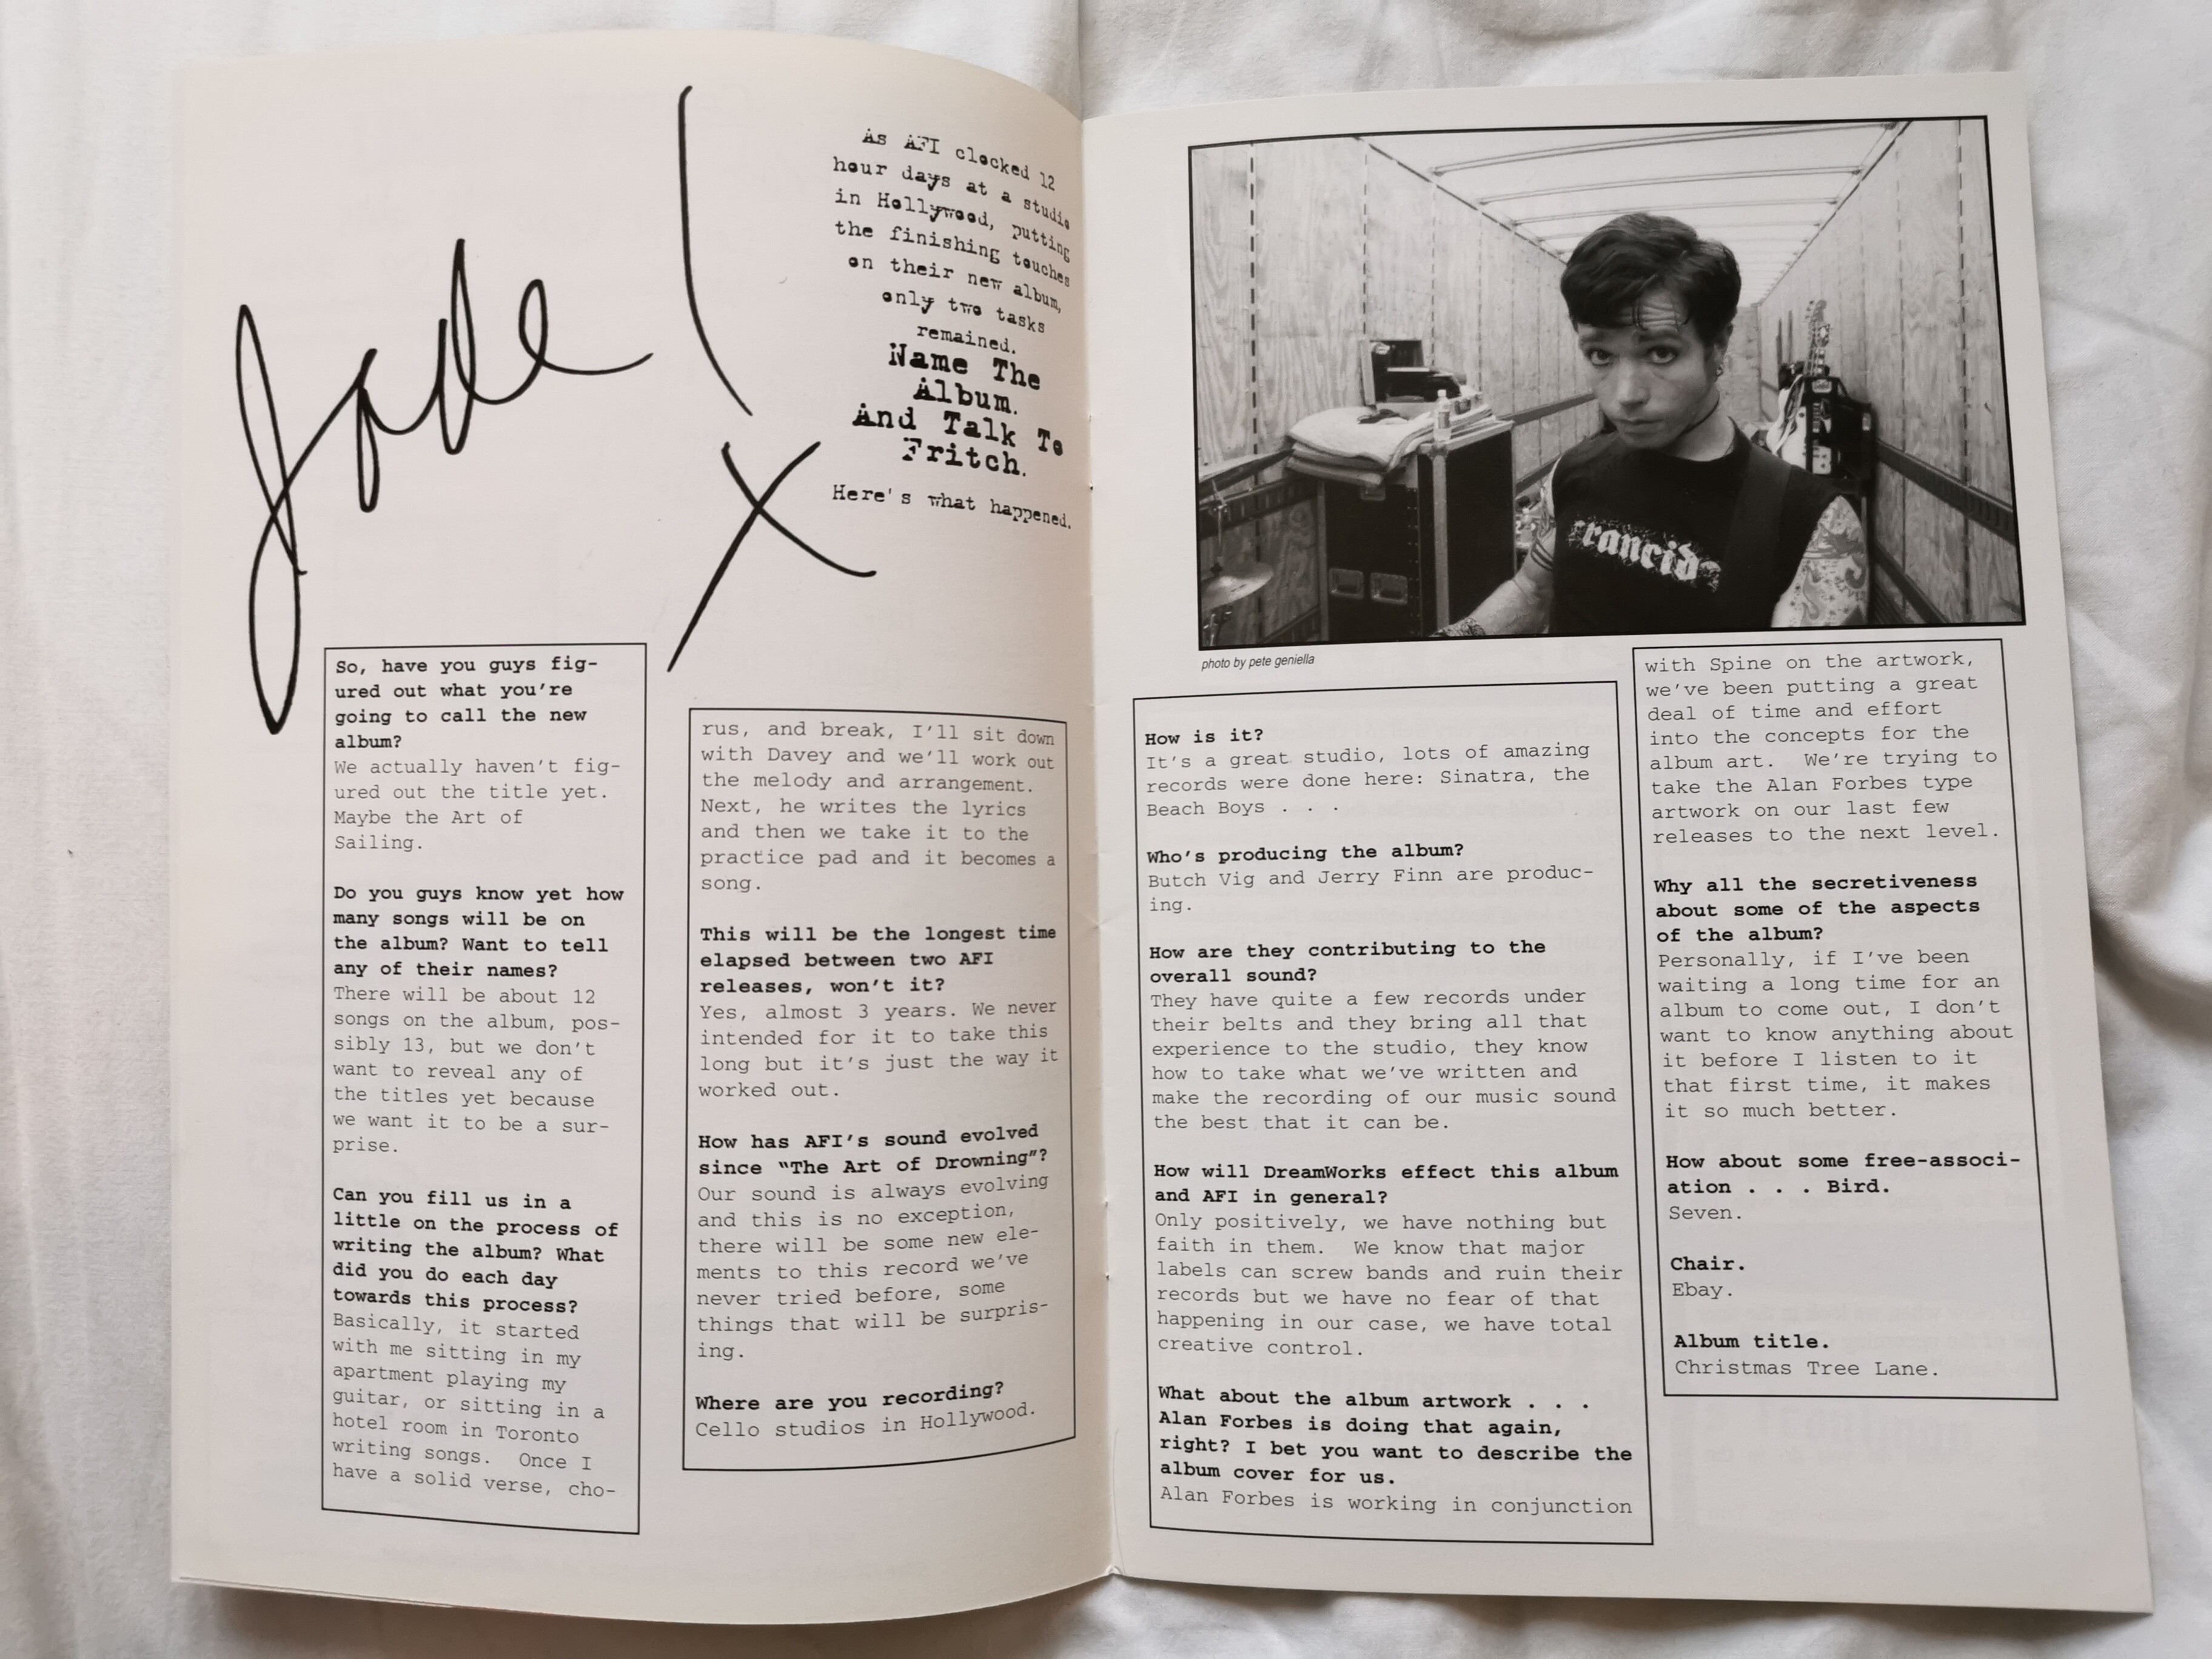 Jade!
X
As AFI clocked 12
hour days at a studio
in Hollywood, putting
the finishing touches
on their new album,
only two tasks
remained.
Name The
Album.
And Talk To
Fritch.
Here's what happened.
So, have you guys fig-
ured out what you're
going to call the new
album?
We actually haven't fig-
ured out the title yet.
Maybe the Art of
Sailing.
Do you guys know yet how
many songs will be on
the album? Want to tell
any of their names?
There will be about 12
songs on the album, pos-
sibly 13, but we don't
want to reveal any of
the titles yet because
we want it to be a sur-
prise.
Can you fill us in a
little on the process of
writing the album? What
did you do each day
towards this process?
Basically, it started
with me sitting in my
apartment playing my
guitar, or sitting in a
hotel room in Toronto
writing songs.  Once I
have a solid verse, cho-
rus, and break, I'll sit down
with Davey and we'll work out
the melody and arrangement.
Next, he writes the lyrics
and then we take it to the
practice pad and it becomes a
song.
This will be the longest time
elapsed between two AFI
releases, won't it?
Yes, almost 3 years. We never
intended for it to take this
long but it's just the way it
worked out.
How has AFI's sound evolved
since "The Art of Drowning"?
Our sound is always evolving
and this is no exception,
there will be some new ele-
ments to this record we've
never tried before, some
things that will be surpris-
ing.
Where are you recording?
Cello studios in Hollywood.
rancid
photo by pete geniella
How is it?
It's a great studio, lots of amazing
records were done here: Sinatra, the
Beach Boys . . .
Who's producing the album?
Butch Vig and Jerry Finn are produc-
ing.
How are they contributing to the
overall sound?
They have quite a few records under
their belts and they bring all that
experience to the studio, they know
how to take what we've written and
make the recording of our music sound
the best that it can be.
How will DreamWorks effect this album
and AFI in general?
Only positively, we have nothing but
faith in them.  We know that major
labels can screw bands and ruin their
records but we have no fear of that
happening in our case, we have total
creative control.
What about the album artwork . . .
Alan Forbes is doing that again,
right? I bet you want to describe the
album cover for us.
Alan Forbes is working in conjunction
with Spine on the artwork,
we've been putting a great
deal of time and effort
into the concepts for the
album art.  We're trying to
take the Alan Forbes type
artwork on our last few
releases to the next level.
Why all the secretiveness
about some of the aspects
of the album?
Personally, if I've been
waiting a long time for an
album to come out, I don't
want to know anything about
it before I listen to it
that first time, it makes
it so much better.
How about some free-associ-
ation . . . Bird.
Seven.
Chair.
Ebay.
Album title.
Christmas Tree Lane.